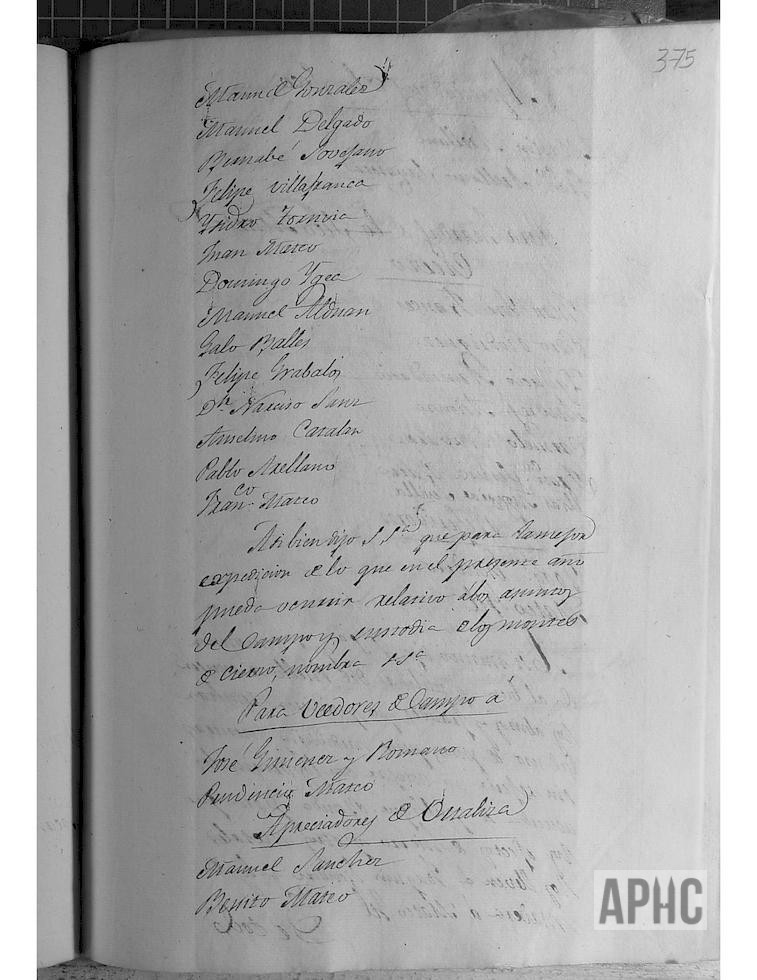 375
Manuel Gonzalez
Manuel Delgado
Bernabé
Felipe Villafranca
Ysidro
Juan Marco
Domingo Ygea
Manuel Alduan
Galo Balles
Felipe Grabalos
Dn Narciso Sanz
Anselmo Catalan
Pablo Arellano
Franco Marco
Asi bien dijo S Sa que para lamejor
expedicion de lo que en el presente año
pueda ocurrir relativo álos asuntos
del Campo y custodia delos montes
de cierzo, nombra SSa
Para Veedores de Campo á
José Gimenez y Romano
Prudencio Marco
Apreciadores de Ortaliza
Manuel Sanchez
Benito Mateo
APHC